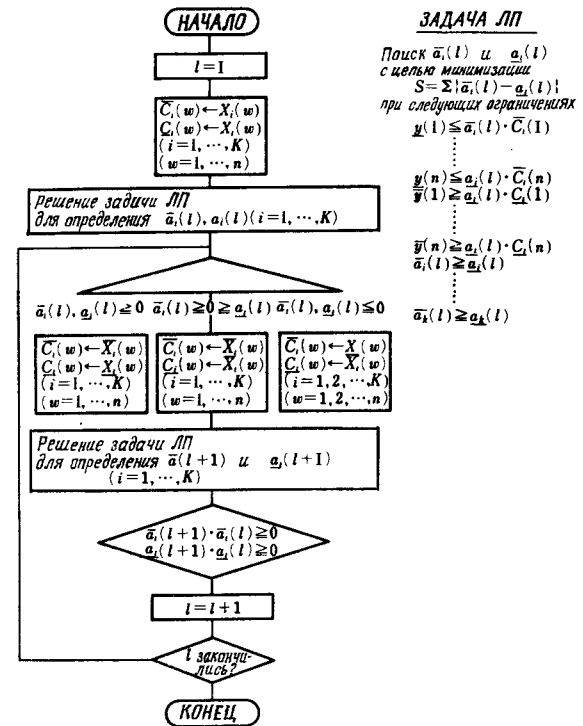 НАЧАЛО
l=I
C̅ᵢ(w)←Xᵢ(w)
C̲ᵢ(w)←Xᵢ(w)
(i=1, ···, K)
(w=1, ···, n)
Решение задачи ЛП
для определения a̅ᵢ(l), aᵢ(l)(i=1, ···, K)
a̅ᵢ(l), a̲ᵢ(l)≧0 a̅ᵢ(l)≧0≧a̲ᵢ(l) a̅ᵢ(l), a̲ᵢ(l)≦0
C̅ᵢ(w)←X̅ᵢ(w)
C̲ᵢ(w)←X̲ᵢ(w)
(i=1, ···, K)
(w=1, ···, n)
C̅ᵢ(w)←X̅ᵢ(w)
C̲ᵢ(w)←X̅ᵢ(w)
(i=1, ···, K)
(w=1, ···, n)
C̅ᵢ(w)←X̲ᵢ(w)
C̲ᵢ(w)←X̅ᵢ(w)
(i=1, 2, ···, K)
(w=1, 2, ···, n)
Решение задачи ЛП
для определения a̅(l+1) и a̲ᵢ(l+I)
(i=1, ···, K)
a̅ᵢ(l+1)·a̅ᵢ(l)≧0
a̲ᵢ(l+1)·a̲ᵢ(l)≧0
l=l+1
l закончи-
лись?
КОНЕЦ
ЗАДАЧА ЛП
Поиск a̅ᵢ(l) и a̲ᵢ(l)
с целью минимизации
S=Σ|a̅ᵢ(l)−a̲ᵢ(l)|
при следующих ограничениях
y̲(1)≦a̅ᵢ(l)·C̅ᵢ(I)
⋮
y̲(n)≦a̲ᵢ(l)·C̅ᵢ(n)
y̅(1)≧a̲ᵢ(l)·C̲ᵢ(1)
⋮
y̅(n)≧a̲ᵢ(l)·C̲ᵢ(n)
a̅ᵢ(l)≧a̲ᵢ(l)
⋮
a̅ₖ(l)≧a̲ₖ(l)